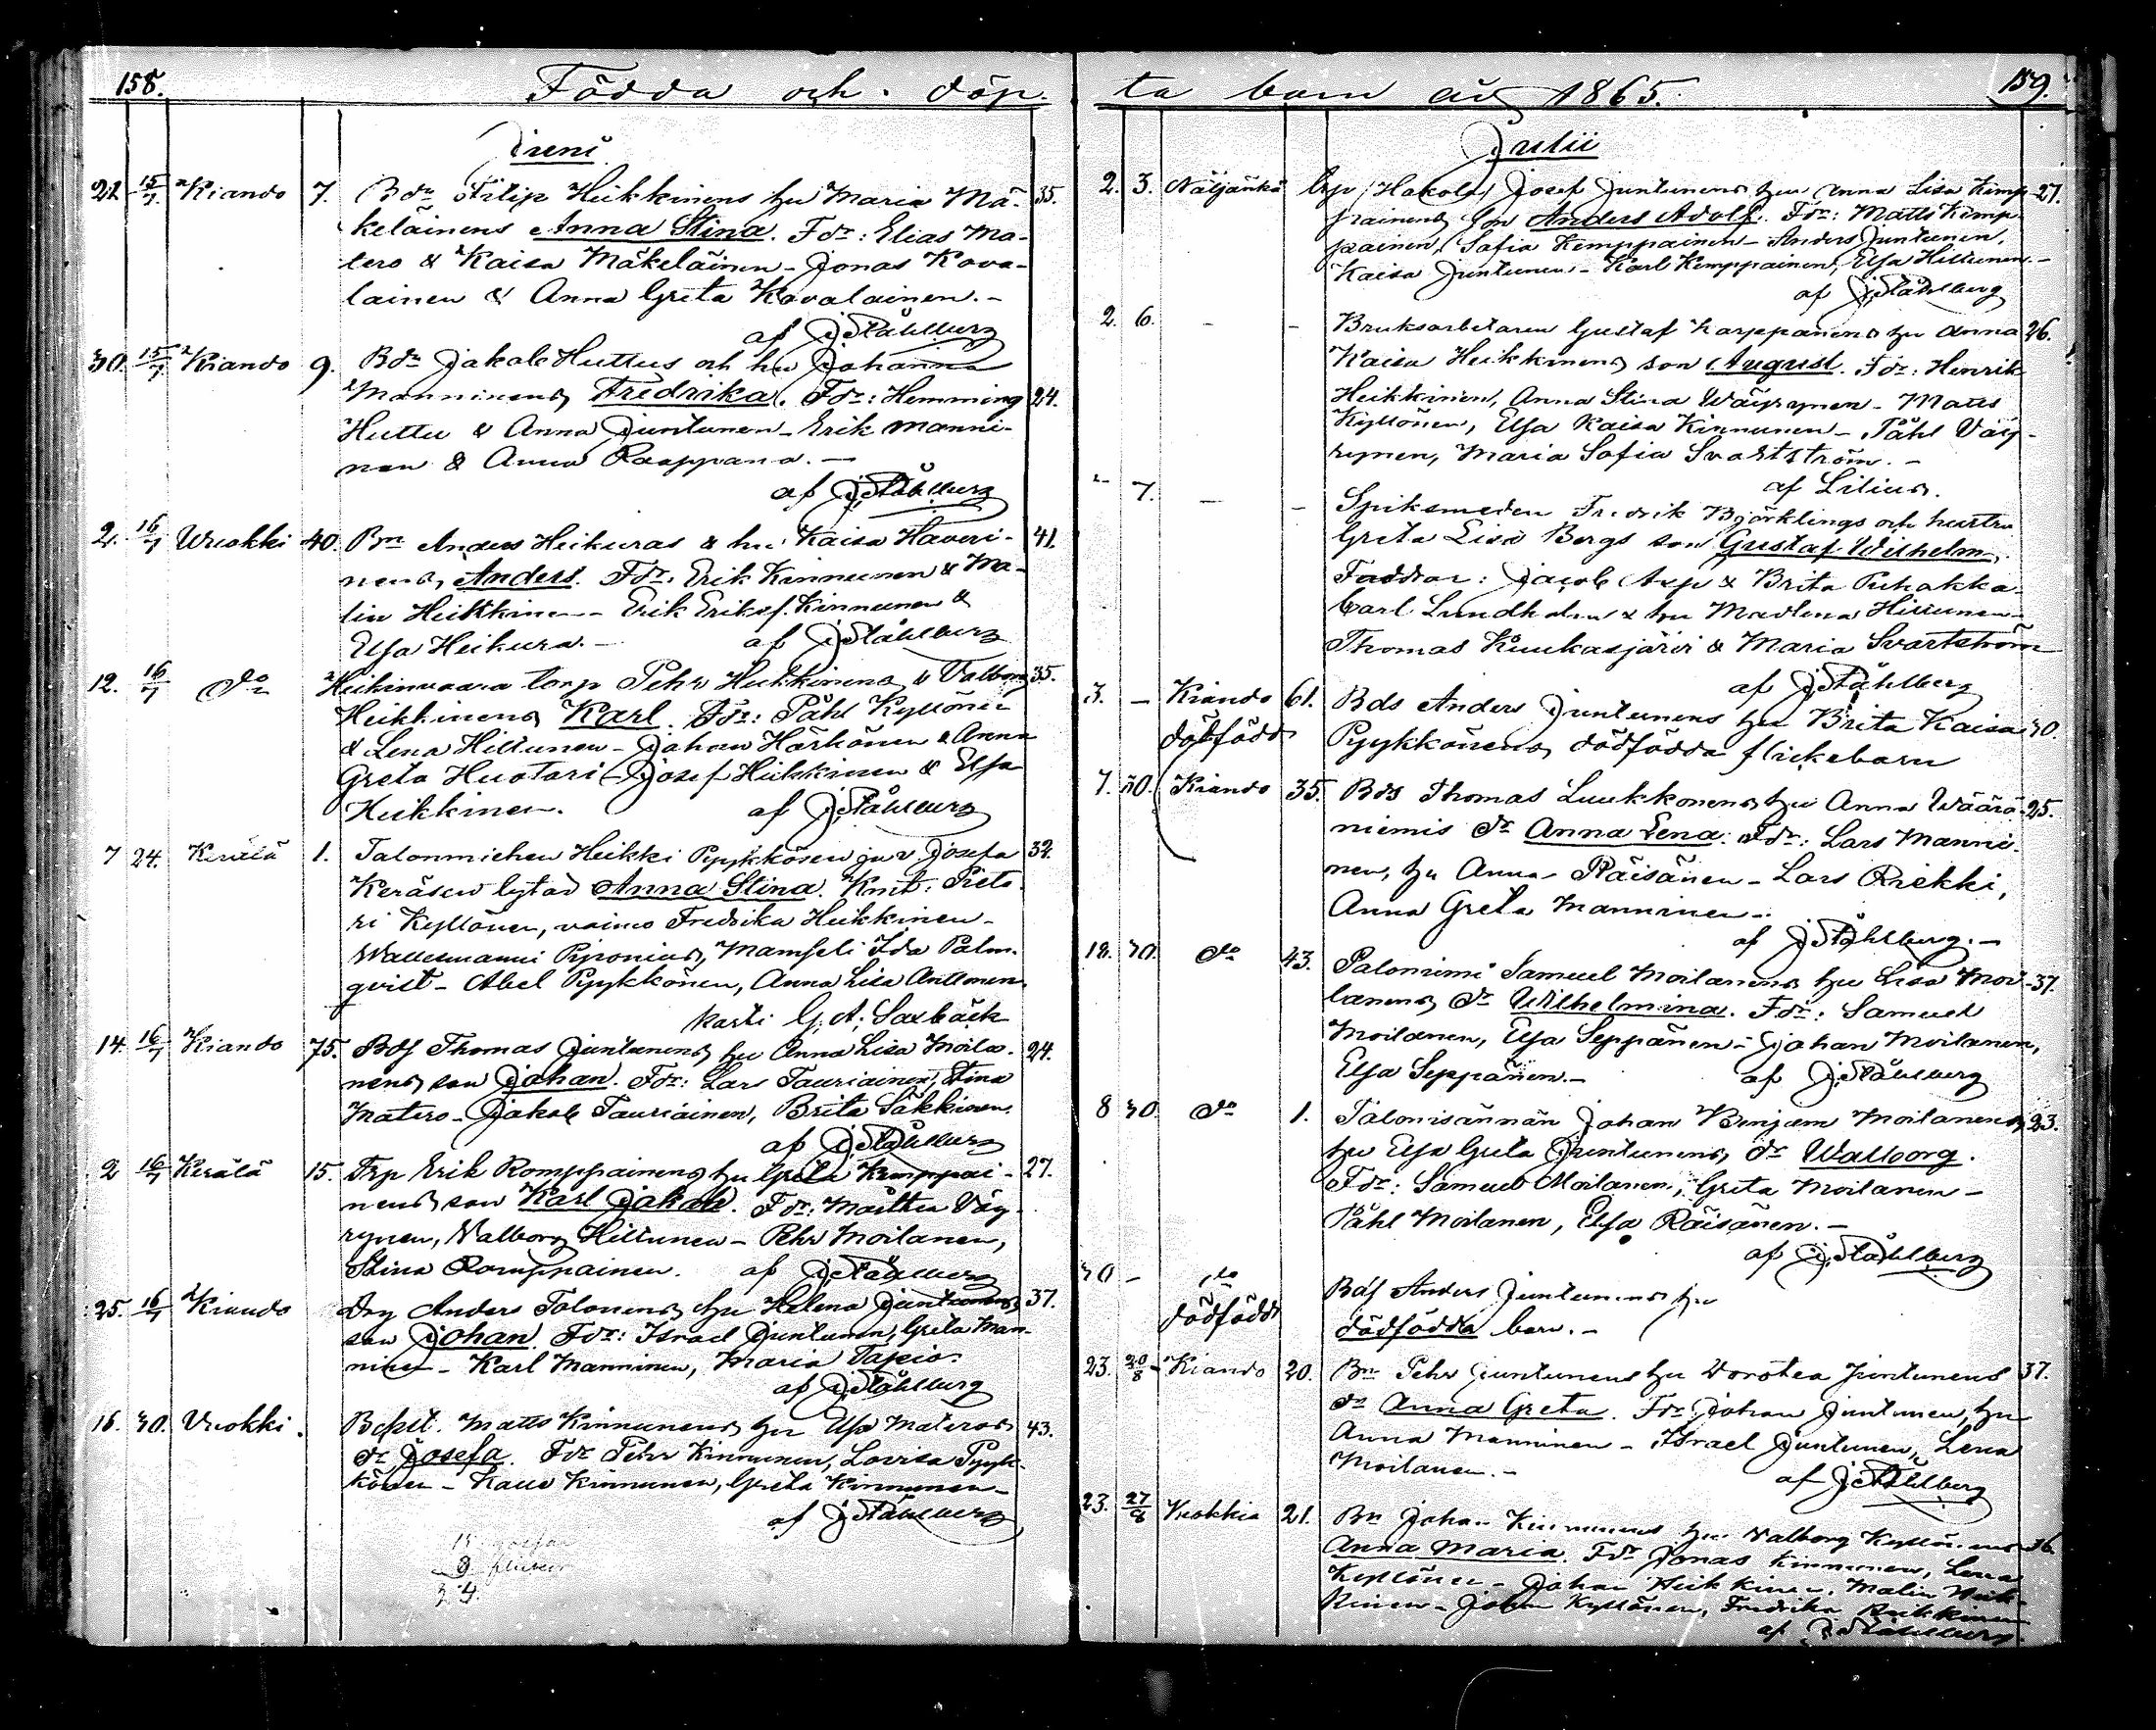 158.
Födda och döp
Juni
22 15/7 Kiando 7. Bdn Filip Heikkinens hu Maria Mä- 35.
keläinens Anna Stina. Fdr: Elias Ma-
tero & Kaisa Mäkeläinen - Jonas Kova-
lainen & Anna Greta Kovalainen. -
af J. Ståhlberg
30. 15/7 Kiando 9. Bdn Jakob Huttus och hu Johanna
Manninens Fredrika. Fdr: Hemming 24.
Huttu & Anna Juntunen - Erik Manni-
nen & Anna Raappana. -
af J. Ståhlberg
2. 16/7 Wuokki 40. Bn Anders Heikuras & hu Kaisa Haveri- 41.
nens Anders. Fdr: Erik Kinnunen & Ma-
lin Heikkinen - Erik Eriksf. Kinnunen &
Elsa Heikura. - af J. Ståhlberg
12. 16/7 do Heikinvaara torp Pehr Heikkinens & Valborg 35.
Heikkinens Karl. Fdr: Påhl Kyllönen
& Lena Hiltunen - Johan Härkönen & Anna
Greta Huotari - Josef Heikkinen & Elsa
Heikkinen. af J. Ståhlberg
7 24. Kerälä 1. Talonmiehen Heikki Pyykkösen ja v. Josefa 32.
Keräsen tytär Anna Stina. Kmt: Pieta-
ri Kyllönen, vaimo Fredrika Heikkinen -
Wallesmanni Pyronius, Mamseli Ida Palm-
qvist - Abel Pyykkönen, Anna Lisa Anttonen
kasti G. A. Saxbäck
14. 16/7 Kiando 75. Bdf Thomas Juntunens hu Anna Lisa Moila- 24.
nens son Johan. Fdr: Lars Tauriainen, Stina
Matero - Jakob Tauriainen, Brita Säkkinen.
af J. Ståhlberg
2 16/7 Kerälä 15. Trp Erik Romppainens hu Greta Kemppai- 27.
nens son Karl Jakob. Fdr: Mårten Väy-
rynen, Valborg Hiltunen - Pehr Moilanen,
Stina Romppainen. af J. Ståhlberg
25. 16/7 Kiando Drg Anders Tolonens hu Helena Juntunens 37.
son Johan. Fdr: Israel Juntunen, Greta Man-
ninen - Karl Manninen, Maria Tapio.
af J. Ståhlberg
16. 30. Vuokki. Matts Kinnunens hu Elsa Materos 43.
dr Josefa. Fdr Pehr Kinnunen, Lovisa Pyyk-
könen - Kalle Kinnunen, Greta Kinnunen -
af J. Ståhlberg
15 gossar
9 flickor
24.
159.
ta barn år 1865.
Julii
2. 3. Näljänkä Trp (Hakola) Josef Juntunens hu Anna Lisa Kemp- 27.
painens son Anders Adolf. Fdr: Matts Kemp-
painen, Sofia Kemppainen - Anders Juntunen,
Kaisa Juntunen - Karl Kemppainen, Elsa Hiltunen. -
af J. Ståhlberg
2. 6. - - Bruksarbetaren Gustaf Karppanens hu Anna 26.
Kaisa Heikkinens son August. Fdr: Henrik
Heikkinen, Anna Stina Wäyrynen - Matts
Kyllönen, Elsa Kaisa Kinnunen - Påhl Väy-
rynen, Maria Sofia Svartström. -
af Lilius.
" 7. - - Spiksmeden Fredrik Björklings och hustru
Greta Lisa Bergs son Gustaf Wilhelm.
Faddrar: Jacob Asp & Brita Puhakka -
Carl Lundholm & hu Madlena Hiltunen -
Thomas Kuukasjärvi & Maria Svartström
af J. Ståhlberg
3. - Kiando 61. Bds Anders Juntunens hu Brita Kaisa 30.
dödfödd Pyykkönens dödfödda flickebarn
7. 30. Kiando 35. Bds Thomas Luukkonens hu Anna Wäärä- 25.
niemis dr Anna Lena. Fdr: Lars Manni-
nen, hu Anna Räisänen - Lars Riekki,
Anna Greta Manninen -
af J. Ståhlberg. -
18. 30. do 43. Palonimi Samuel Moilanens hu Lisa Moi- 37.
lanens dr Wilhelmina. Fdr: Samuel
Moilanen, Elsa Seppänen - Johan Moilanen,
Elsa Seppänen. - af J. Ståhlberg
8 30. do 1. Talonisännän Johan Benjam Moilanens 23.
hu Elsa Greta Juntunens, dr Walborg.
Fdr: Samuel Moilanen, Greta Moilanen -
Påhl Moilanen, Elsa Räisänen. -
af J. Ståhlberg
30 - do Bdf Anders Juntunens hu
dödfödd dödfödda barn. -
23. 20/8 Kiando 20. Bn Pehr Juntunens hu Dorotea Juntunens 37.
dr Anna Greta. Fdr: Johan Juntunen, hu
Anna Manninen - Israel Juntunen, Lena
Moilanen. - af J. Ståhlberg
23. 27/8 Vuokkia 21. Bn Johan Kinnunens hu Valborg Kyllönens 36.
Anna Maria. Fdr Jonas Kinnunen, Lena
Kyllönen - Johan Heikkinen, Malin Heik-
kinen - Johan Kyllönen, Fredrika Heikkinen
af J. Ståhlberg.